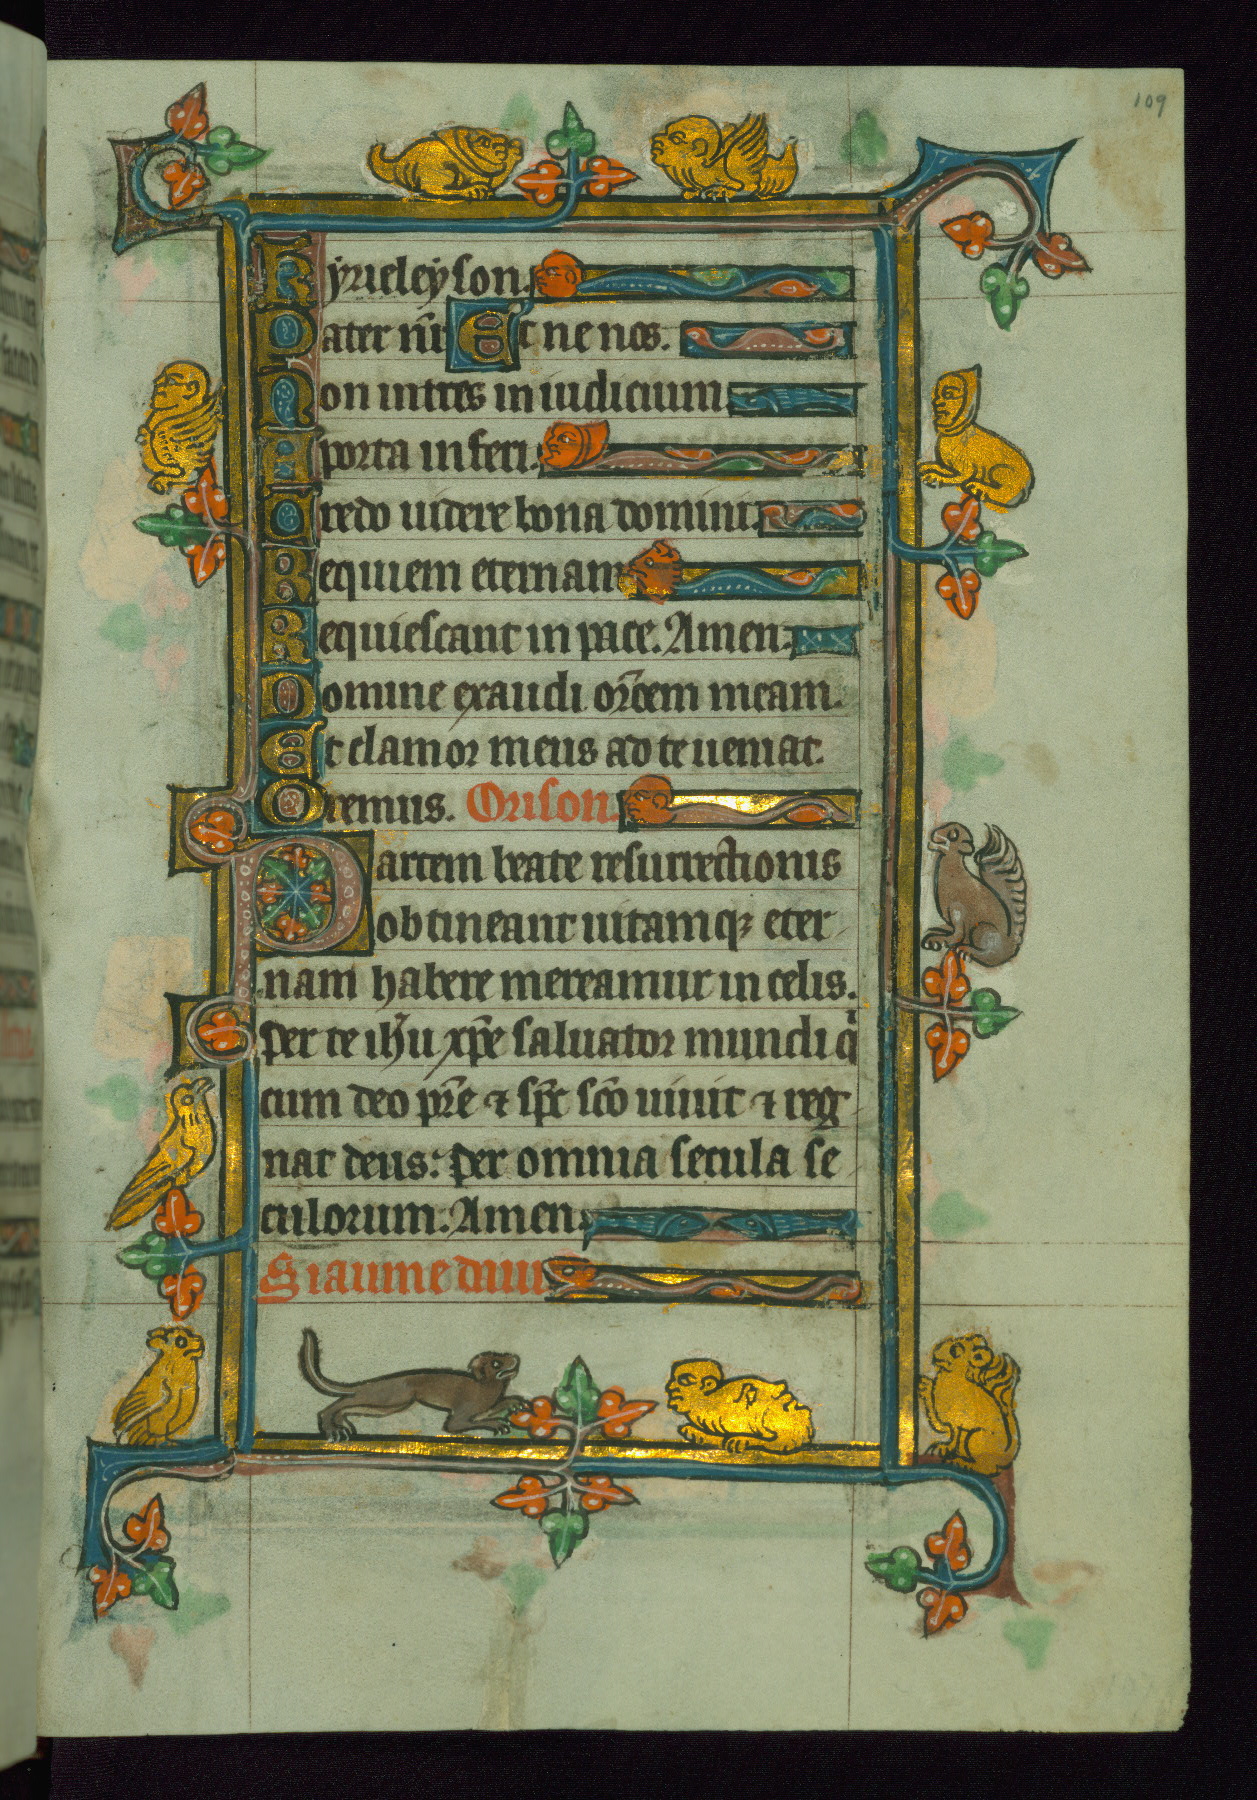 109
Kyrieleyson.
Pater nr̄ Et ne nos.
Non intres in iudicium.
A porta inferi.
Credo uidere bona domini.
Requiem eternam
Requiescant in pace. Amen.
Domine exaudi orōem meam.
Et clamor meus ad te ueniat.
Oremus. Orison.
Partem beate resurrectionis
obtineant uitamqꝫ eter
nam habere mereamur in celis.
Per te ihū xp̄e saluator mundi qͥ
cum deo pr̄e ⁊ sp̄c sc̄o uiuit ⁊ reg
nat deus. Per omnia secula se
culorum. Amen.
Siaume dauí